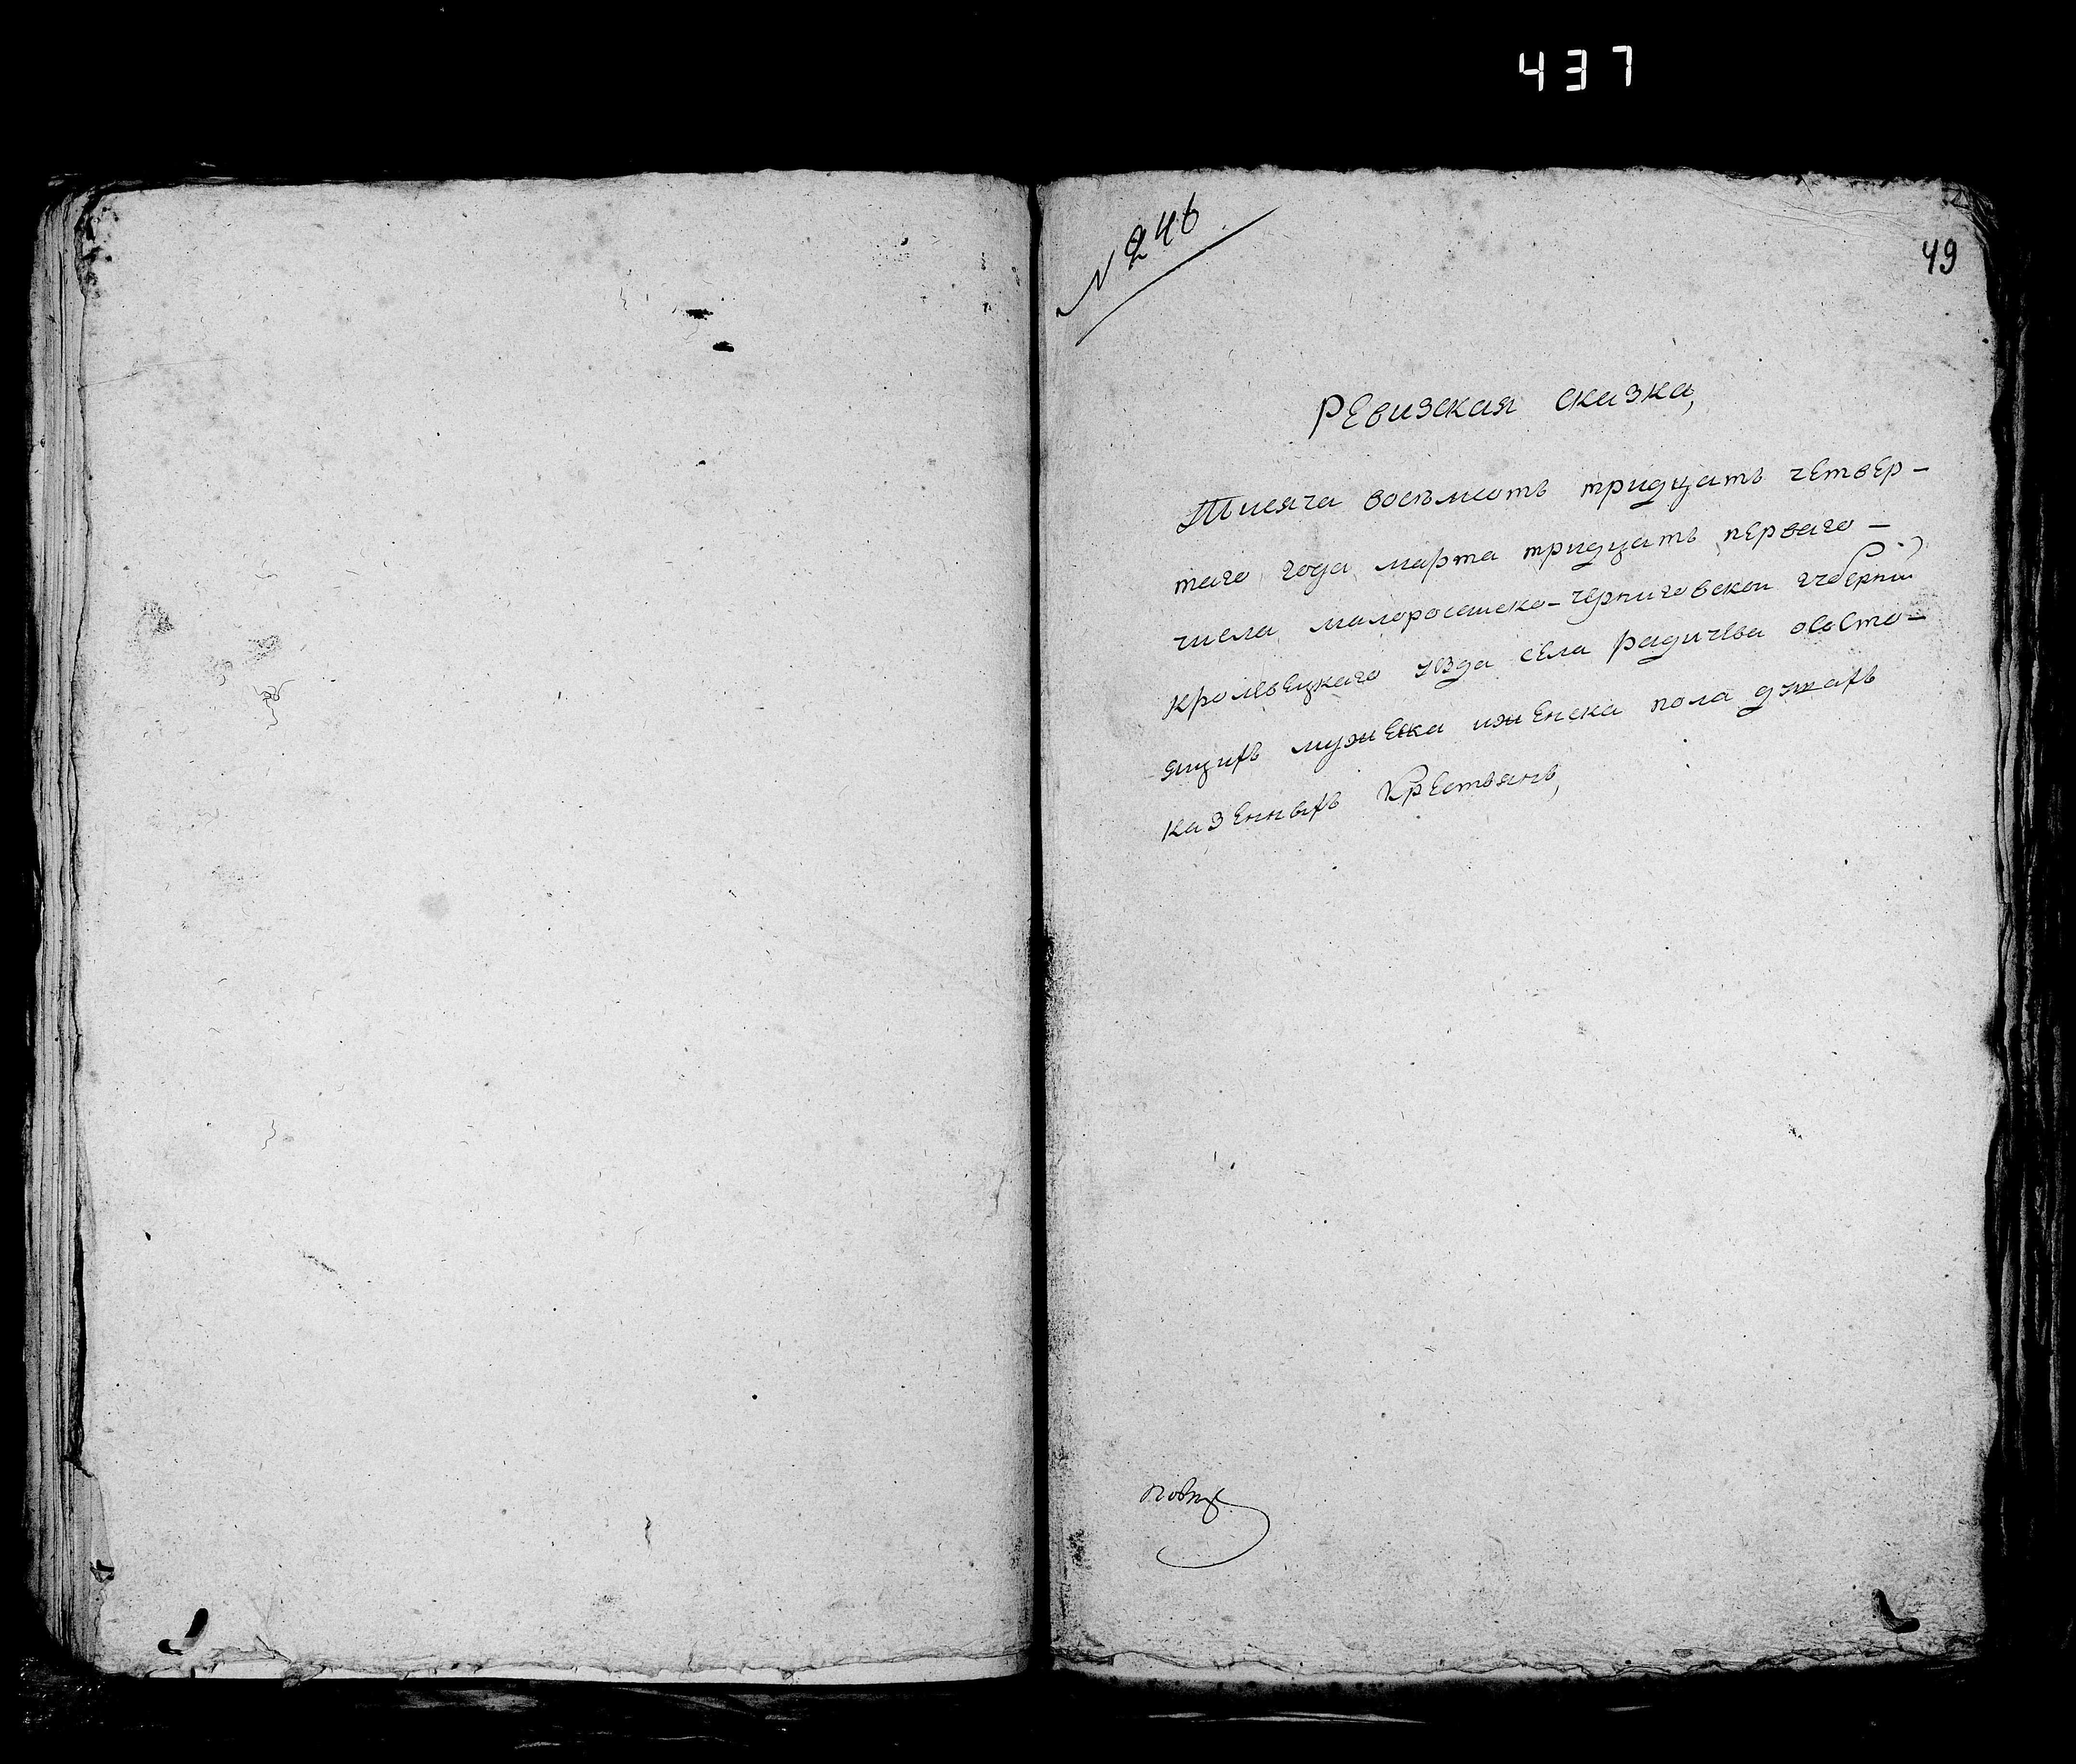 437
№ 246
49
Ревизская сказка,
Тисяча восъмсотъ тридцатъ четвер-
таго года марта тридцатъ перваго-
числа малоросииско-черниговскои губернии
кролевецкаго уезда села радичева осостo-
ящихъ мужека иженска пола душахъ
казенныхъ Крестьянъ,